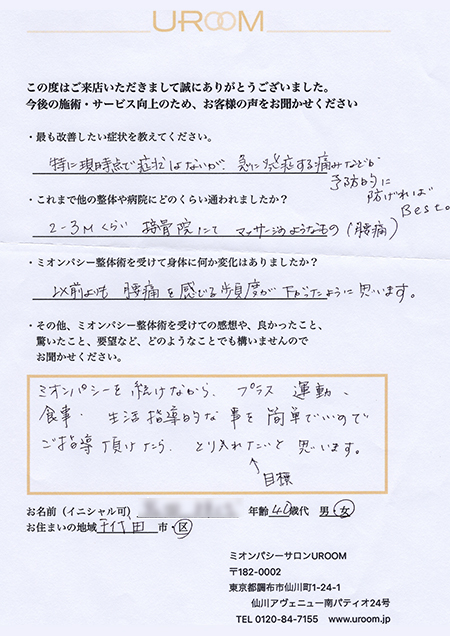 UROOM
この度はご来店いただきまして誠にありがとうございました。
今後の施術・サービス向上のため、お客様の声をお聞かせください
・最も改善したい症状を教えてください。
特に現時点で症状はないが、急に発症する痛みなどが
予防的に
防げれば
Best。
・これまで他の整体や病院にどのくらい通われましたか？
2-3Mくらい 接骨院にて マッサージのようなもの(腰痛)
・ミオンパシー整体術を受けて身体に何か変化はありましたか？
以前よりも 腰痛を感じる頻度が下がったように思います。
・その他、ミオンパシー整体術を受けての感想や、良かったこと、
驚いたこと、要望など、どのようなことでも構いませんので
お聞かせください。
ミオンパシーを続けながら、プラス 運動、
食事・生活指導的な事を簡単でいいので
ご指導頂けたら、とり入れたいと思います。
↑
目標
お名前（イニシャル可） 年齢 40歳代 男・女
お住まいの地域 千代田 市・区
ミオンパシーサロンUROOM
〒182-0002
東京都調布市仙川町1-24-1
仙川アヴェニュー南パティオ24号
TEL 0120-84-7155 www.uroom.jp